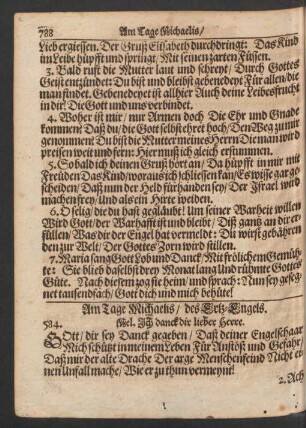 788 Am Tage Michaelis/
Lieb ergiessen. Der Gruß Elisabeth durchdringt: Das Kind
im Leibe hüpfft und springt/ Mit seinen zarten Füssen.
3. Bald rufft die Mutter laut und schreyt/ Durch Gottes
Geist entzündet: Du bist und bleibst gebenedeyt Für allen/ die
man findet. Gebenedeyet ist allhier Auch deine Leibesfrucht
in dir! Die Gott und uns verbindet.
4. Woher ist mir/ mir Armen doch Die Ehr und Gnade
kommen? Daß du/ die Gott selbst ehret hoch/ Den Weg zu mir
genommen! Du bist die Mutter meines Herrn Die man wird
preisen weit und fern: Hier muß ich gleich erstummen.
5. So bald ich deinen Gruß hört an/ Da hüpfft in mir mit
Freuden Das Kind/ woraus ich schliessen kan/ Es wisse gar ge-
scheiden/ Daß nun der Held fürhanden sey/ Der Israel wird
machen frey/ Und als ein Hirte weiden.
6. O selig/ die du hast gegläubt! Um seiner Warheit willen
Wird Gott/ der Warhafft ist und bleibt/ Diß gantz an dir er-
füllen/ Was dir der Engel hat vermeldt: Du wirst gebähren
den zur Welt/ Der Gottes Zorn wird stillen.
7. Maria sang Gott Lob und Danck/ Mit frölichem Gemü-
the: Sie blieb daselbst drey Monat lang Und rühmte Gottes
Güte. Nach diesem zog sie heim/ und sprach: Nun sey geseg-
net tausendfach/ Gott dich und mich behüte!
Am Tage Michaelis/ des Ertz-Engels.
584. Mel. Ich danck dir lieber Herre.
GOtt/ dir sey Danck gegeben/ Daß deiner Engel schaar
Mich schützt in meinem Leben Für Anstöß und Gefahr/
Daß mir der alte Drache Der arge Menschenfeind Nicht ei-
nen Unfall mache/ Wie er zu thun vermeynt!
2. Ach